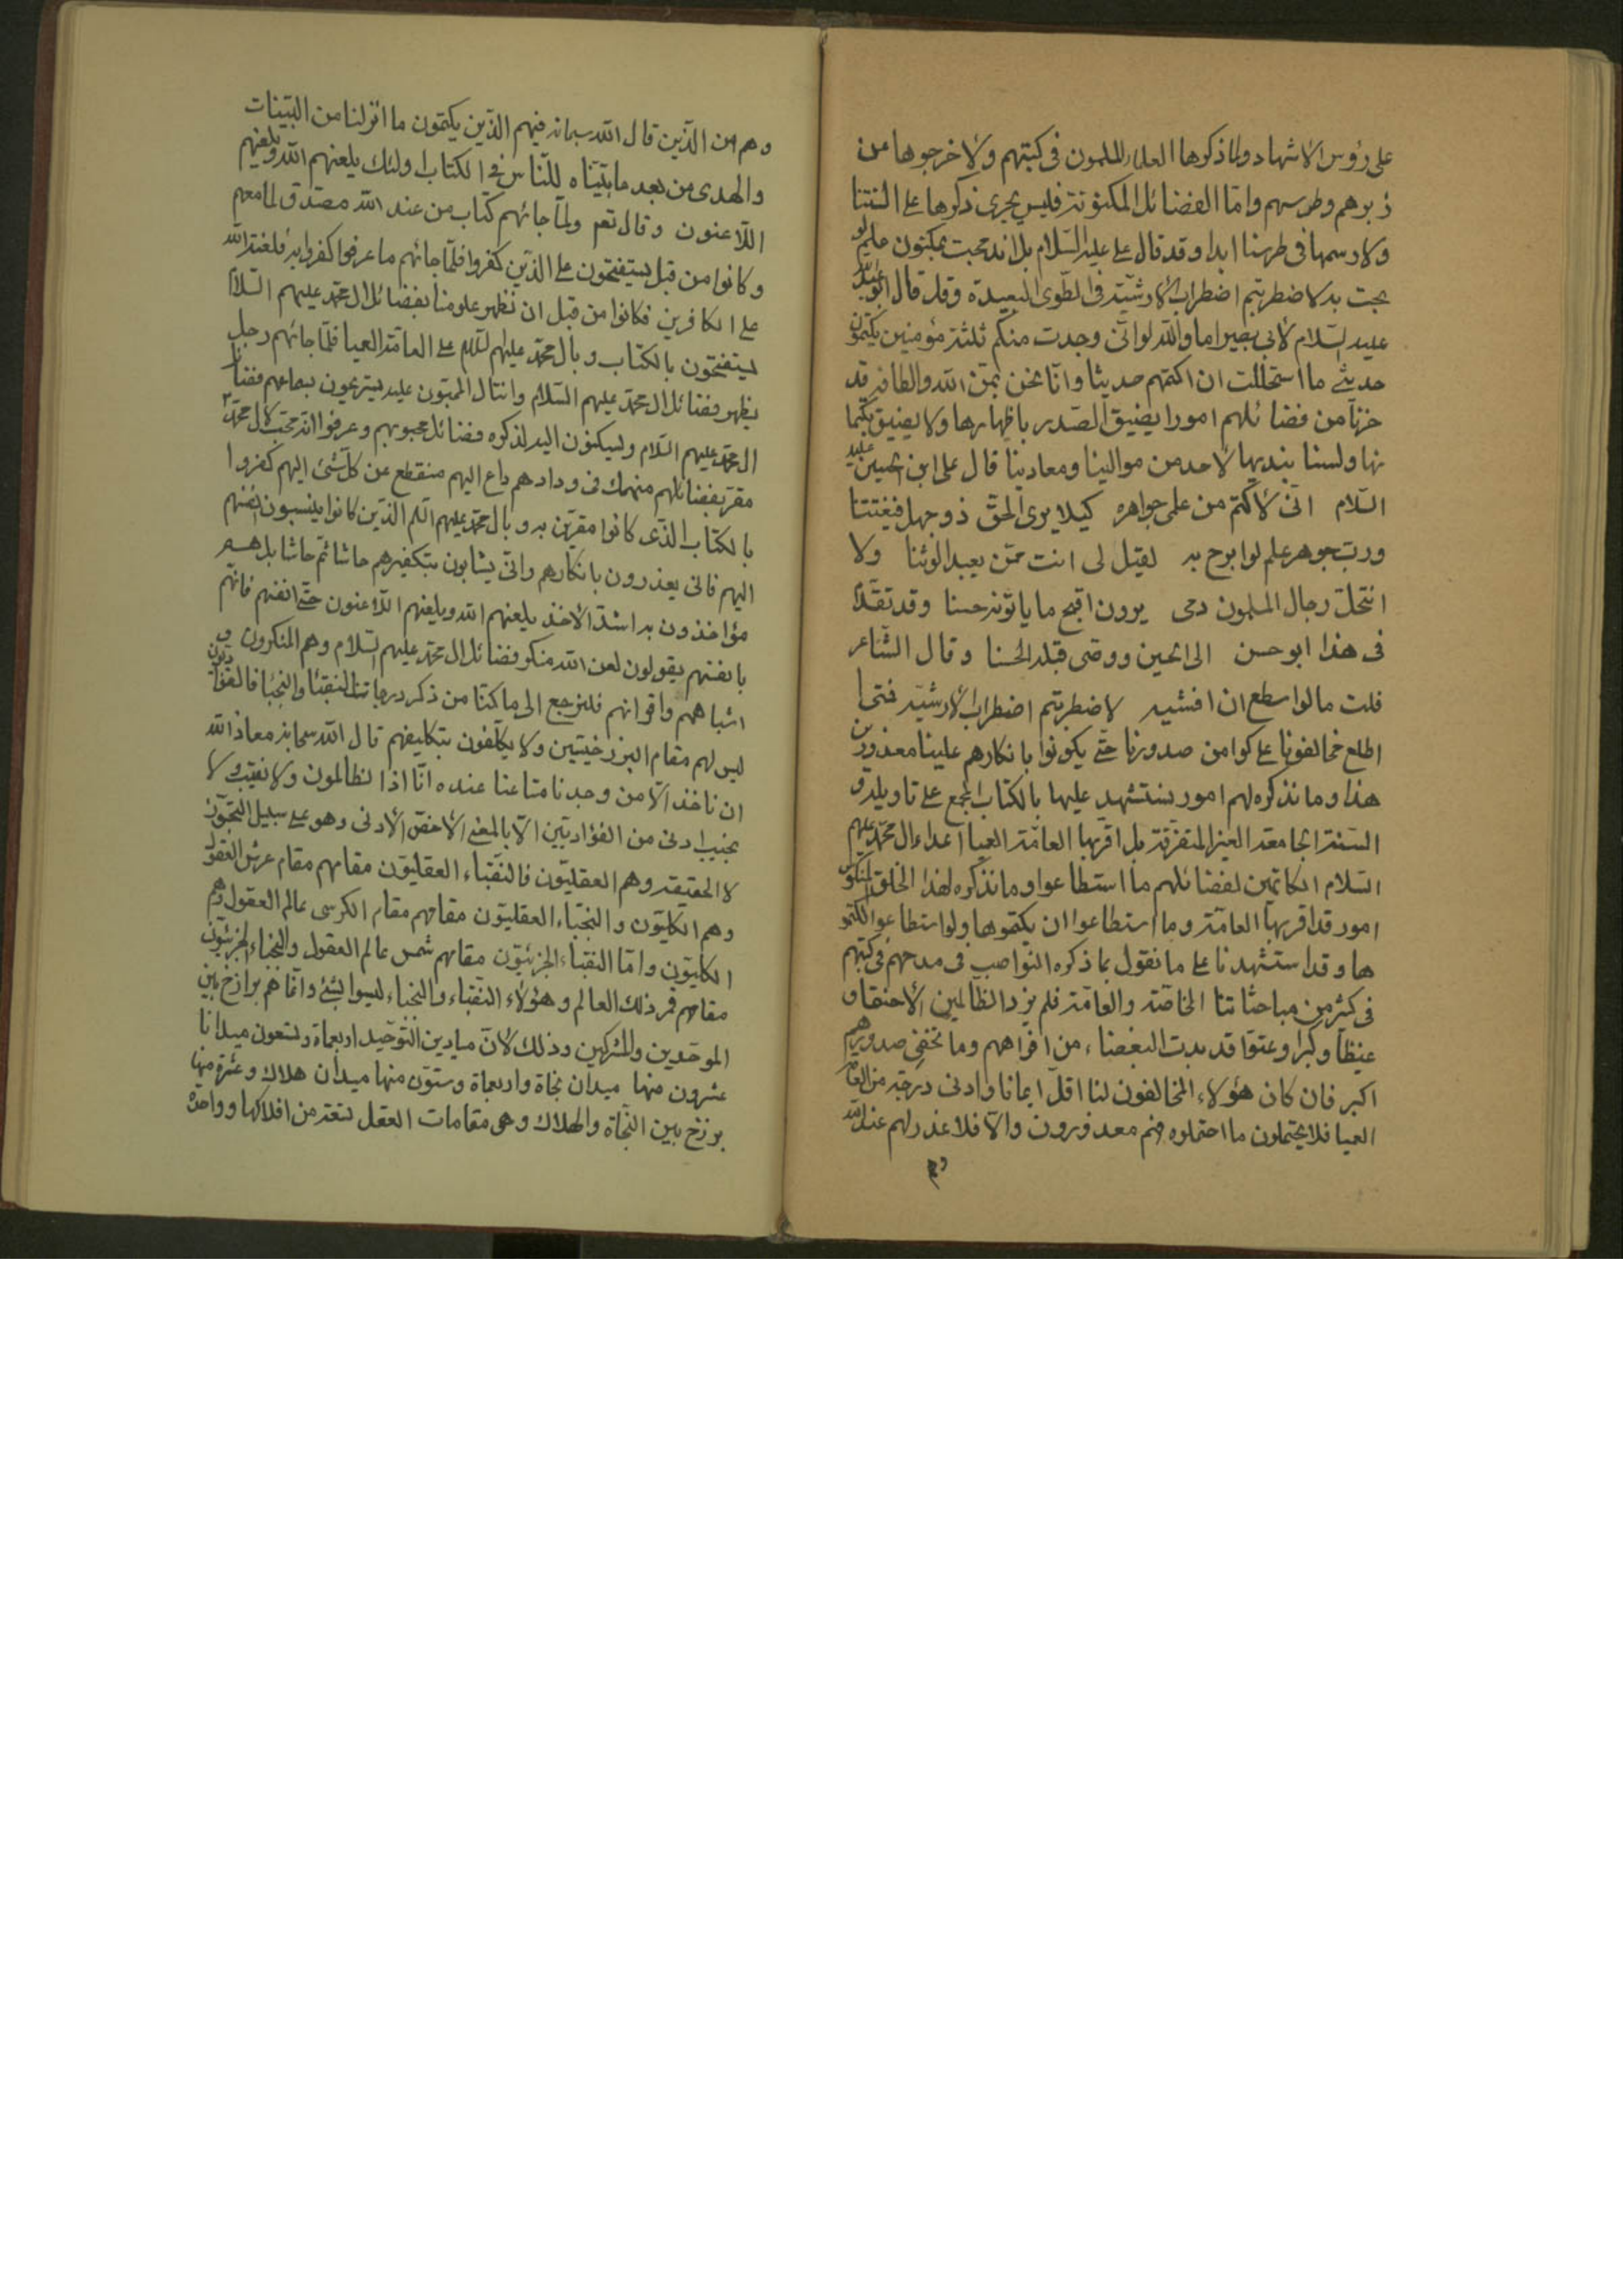 على رؤس الاشهاد ولما ذكروها العلماء المسلمون فى كتبهم ولاخرجوها من
زبرهم وطروسهم واما الفضائل المكنونة فليس يجرى ذكرها على السنتنا
ولا رسمها فى طرسنا ابدا وقد قال على عليه السلام بل اندمجت بمكنون علم لو
بحت به لاضطربتم اضطراب الارشية فى الطوى البعيدة وقد قال ابو عبد الله
عليه السلام لابى بصير اما والله لو انى وجدت منكم ثلثة مؤمنين يكتمون
حديثى ما استحللت ان اكتمهم حديثا وانا نحن بمن الله والطافه قد
خزنا من فضائلهم امورا يضيق الصدر باظهارها ولا يضيق بكتما
نها ولسنا بنديها لاحد من موالينا ومعادينا قال على ابن الحسين عليه
السلام انى لاكتم من علمى جواهره كيلا يرى الحق ذو جهل فيفتتنا
ورب جوهر علم لو ابوح به لقيل لى انت ممن يعبد الوثنا ولا
استحل رجال المسلمون دمى يرون اقبح ما ياتونه حسنا وقد تقدم
فى هذا ابو حسن الى الحسين ووصى قبله الحسنا وقال الشاعر
قلت ما لو اسطع ان افشيه لاضطربتم اضطراب الارشية فمتى
اطلع مخالفونا على كوامن صدورنا حتى يكونوا بانكارهم علينا معذورين
هذا وما نذكره لهم امور يستشهد عليها بالكتاب المجمع على تاويله و
السنة الجامعة الغير المتفرقة بل اقر بها العامة العميا اعداء ال محمد عليهم
السلام الكاتمين لفضائلهم ما استطاعوا وما نذكره لهذا الخلق المنكوس
امور قد اقر بها العامة وما استطاعوا ان يكتموها ولو استطاعوا لكتمو
ها وقد استشهدنا على ما نقول بما ذكره النواصب فى مدحهم فى كتبهم
فى كثير من مباحثاتنا الخاصة والعامة فلم يزد الظالمين الا حنقا و
غيظا وكبرا وعتوا قد بدت البغضاء من افواههم وما تخفى صدورهم
اكبر فان كان هؤلاء المخالفون لنا اقل ايمانا وادنى درجة من العامة
العميا فلا يحتملون ما احتملوه فهم معذورون والا فلا عذر لهم عند الله
وهم من الذين قال الله سبحانه فيهم الذين يكتمون ما انزلنا من البينات
والهدى من بعد ما بيناه للناس فى الكتاب اولئك يلعنهم الله ويلعنهم
اللاعنون وقال تعم ولما جائهم كتاب من عند الله مصدق لما معهم
وكانوا من قبل يستفتحون على الذين كفروا فلما جائهم ما عرفوا كفروا به فلعنة الله
على الكافرين فكانوا من قبل ان نظهر علومنا بفضائل ال محمد عليهم السلام
يستفتحون بالكتاب وبال محمد عليهم السلام على العامة العميا فلما جائهم رجل
يظهر فضائل ال محمد عليهم السلام وانثال المحبون عليه يستريحون بسماعهم فضائل
ال محمد عليهم السلام ويسكنون اليه لذكره فضائل محبوبهم وعرفوا انه محب لال محمد
مقر بفضائلهم منهمك فى ودادهم داع اليهم منقطع عن كل شئ اليهم كفروا
بالكتاب الذى كانوا مقرين به وبال محمد عليهم السلم الذين كانوا ينسبون انفسهم
اليهم فانى يعذرون بانكارهم وانى يثابون بتكفيرهم حاشا ثم حاشا بل هم
مؤاخذون به اشد الاخذ يلعنهم الله ويلعنهم اللاعنون حتى انفسهم فانهم
بانفسهم يقولون لعن الله منكر فضائل ال محمد عليهم السلام وهم المنكرون و
اشباههم واقرانهم فلنرجع الى ما كنا من ذكر درجاتنا النقبا والنجبا فالفؤاديون
ليس لهم مقام البرزخيتين ولا يكلفون بتكاليفهم قال الله سبحانه معاذ الله
ان ناخذ الا من وجدنا متاعنا عنده انا اذا لظالمون ولا نقيب ولا
نجيب ادنى من الفؤاديين الا بالمعنى الاخص الادنى وهو على سبيل التجوز
لا الحقيقة وهم العقليون فالنقباء العقليون مقامهم مقام عرش العقول
وهم الكليون والنجباء العقليون مقامهم مقام الكرسى عالم العقول وهم
الكليون واما النقباء الجزئيون مقامهم شمس عالم العقول والنجباء الجزئيون
مقامهم قمر ذلك العالم وهؤلاء النقباء والنجباء ليسوا بشئ وانما هم برازخ بين
الموحدين والمشركين وذلك لان ميادين التوحيد اربعماة وتسعون ميدانا
عشرون منها ميدان نجاة واربعماة وستون منها ميدان هلاك وعشرة منها
برزخ بين النجاة والهلاك وهى مقامات العقل تسعة من افلاكها وواحدة